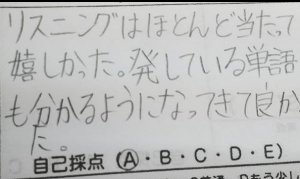 リスニングはほとんど当たって
嬉しかった。発している単語
も分かるようになってきて良か
た。
自己採点（A・B・C・D・E）